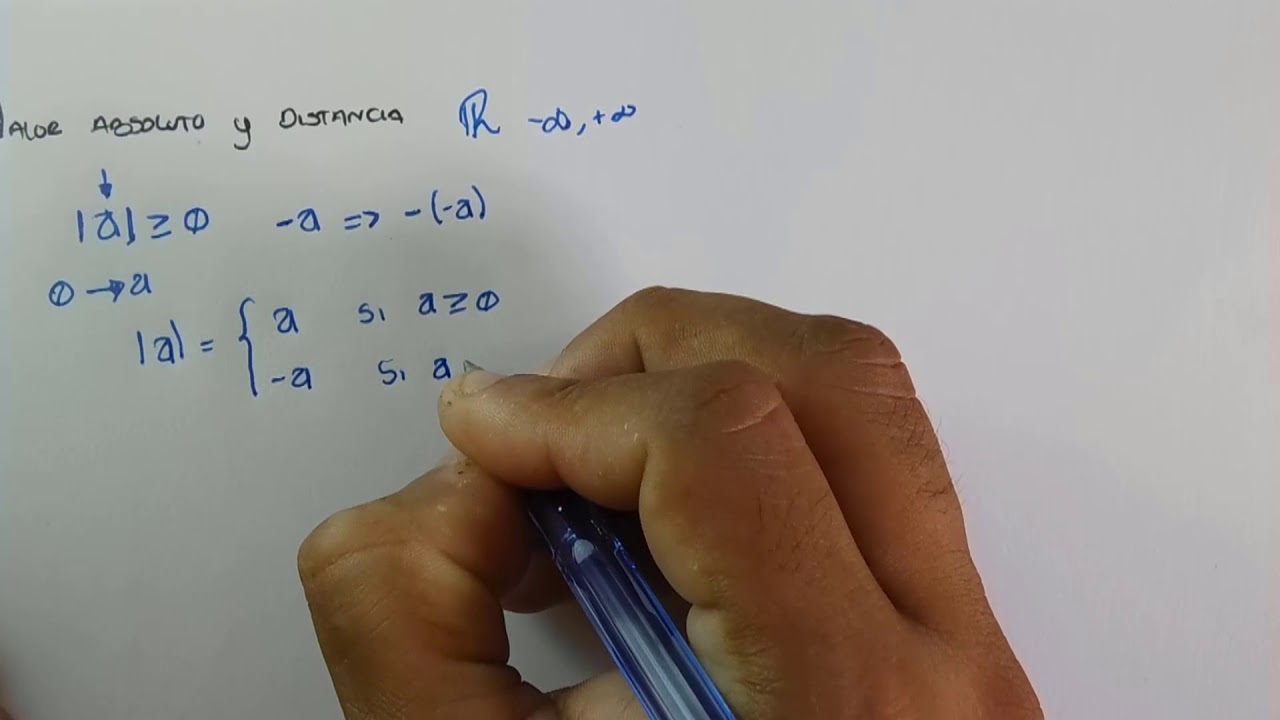 VALOR ABSOLUTO y DISTANCIA ℝ -∞, +∞
↓
|a| ≥ 0 -a => -(-a)
0 → a
|a| = { a si a ≥ 0
-a si a